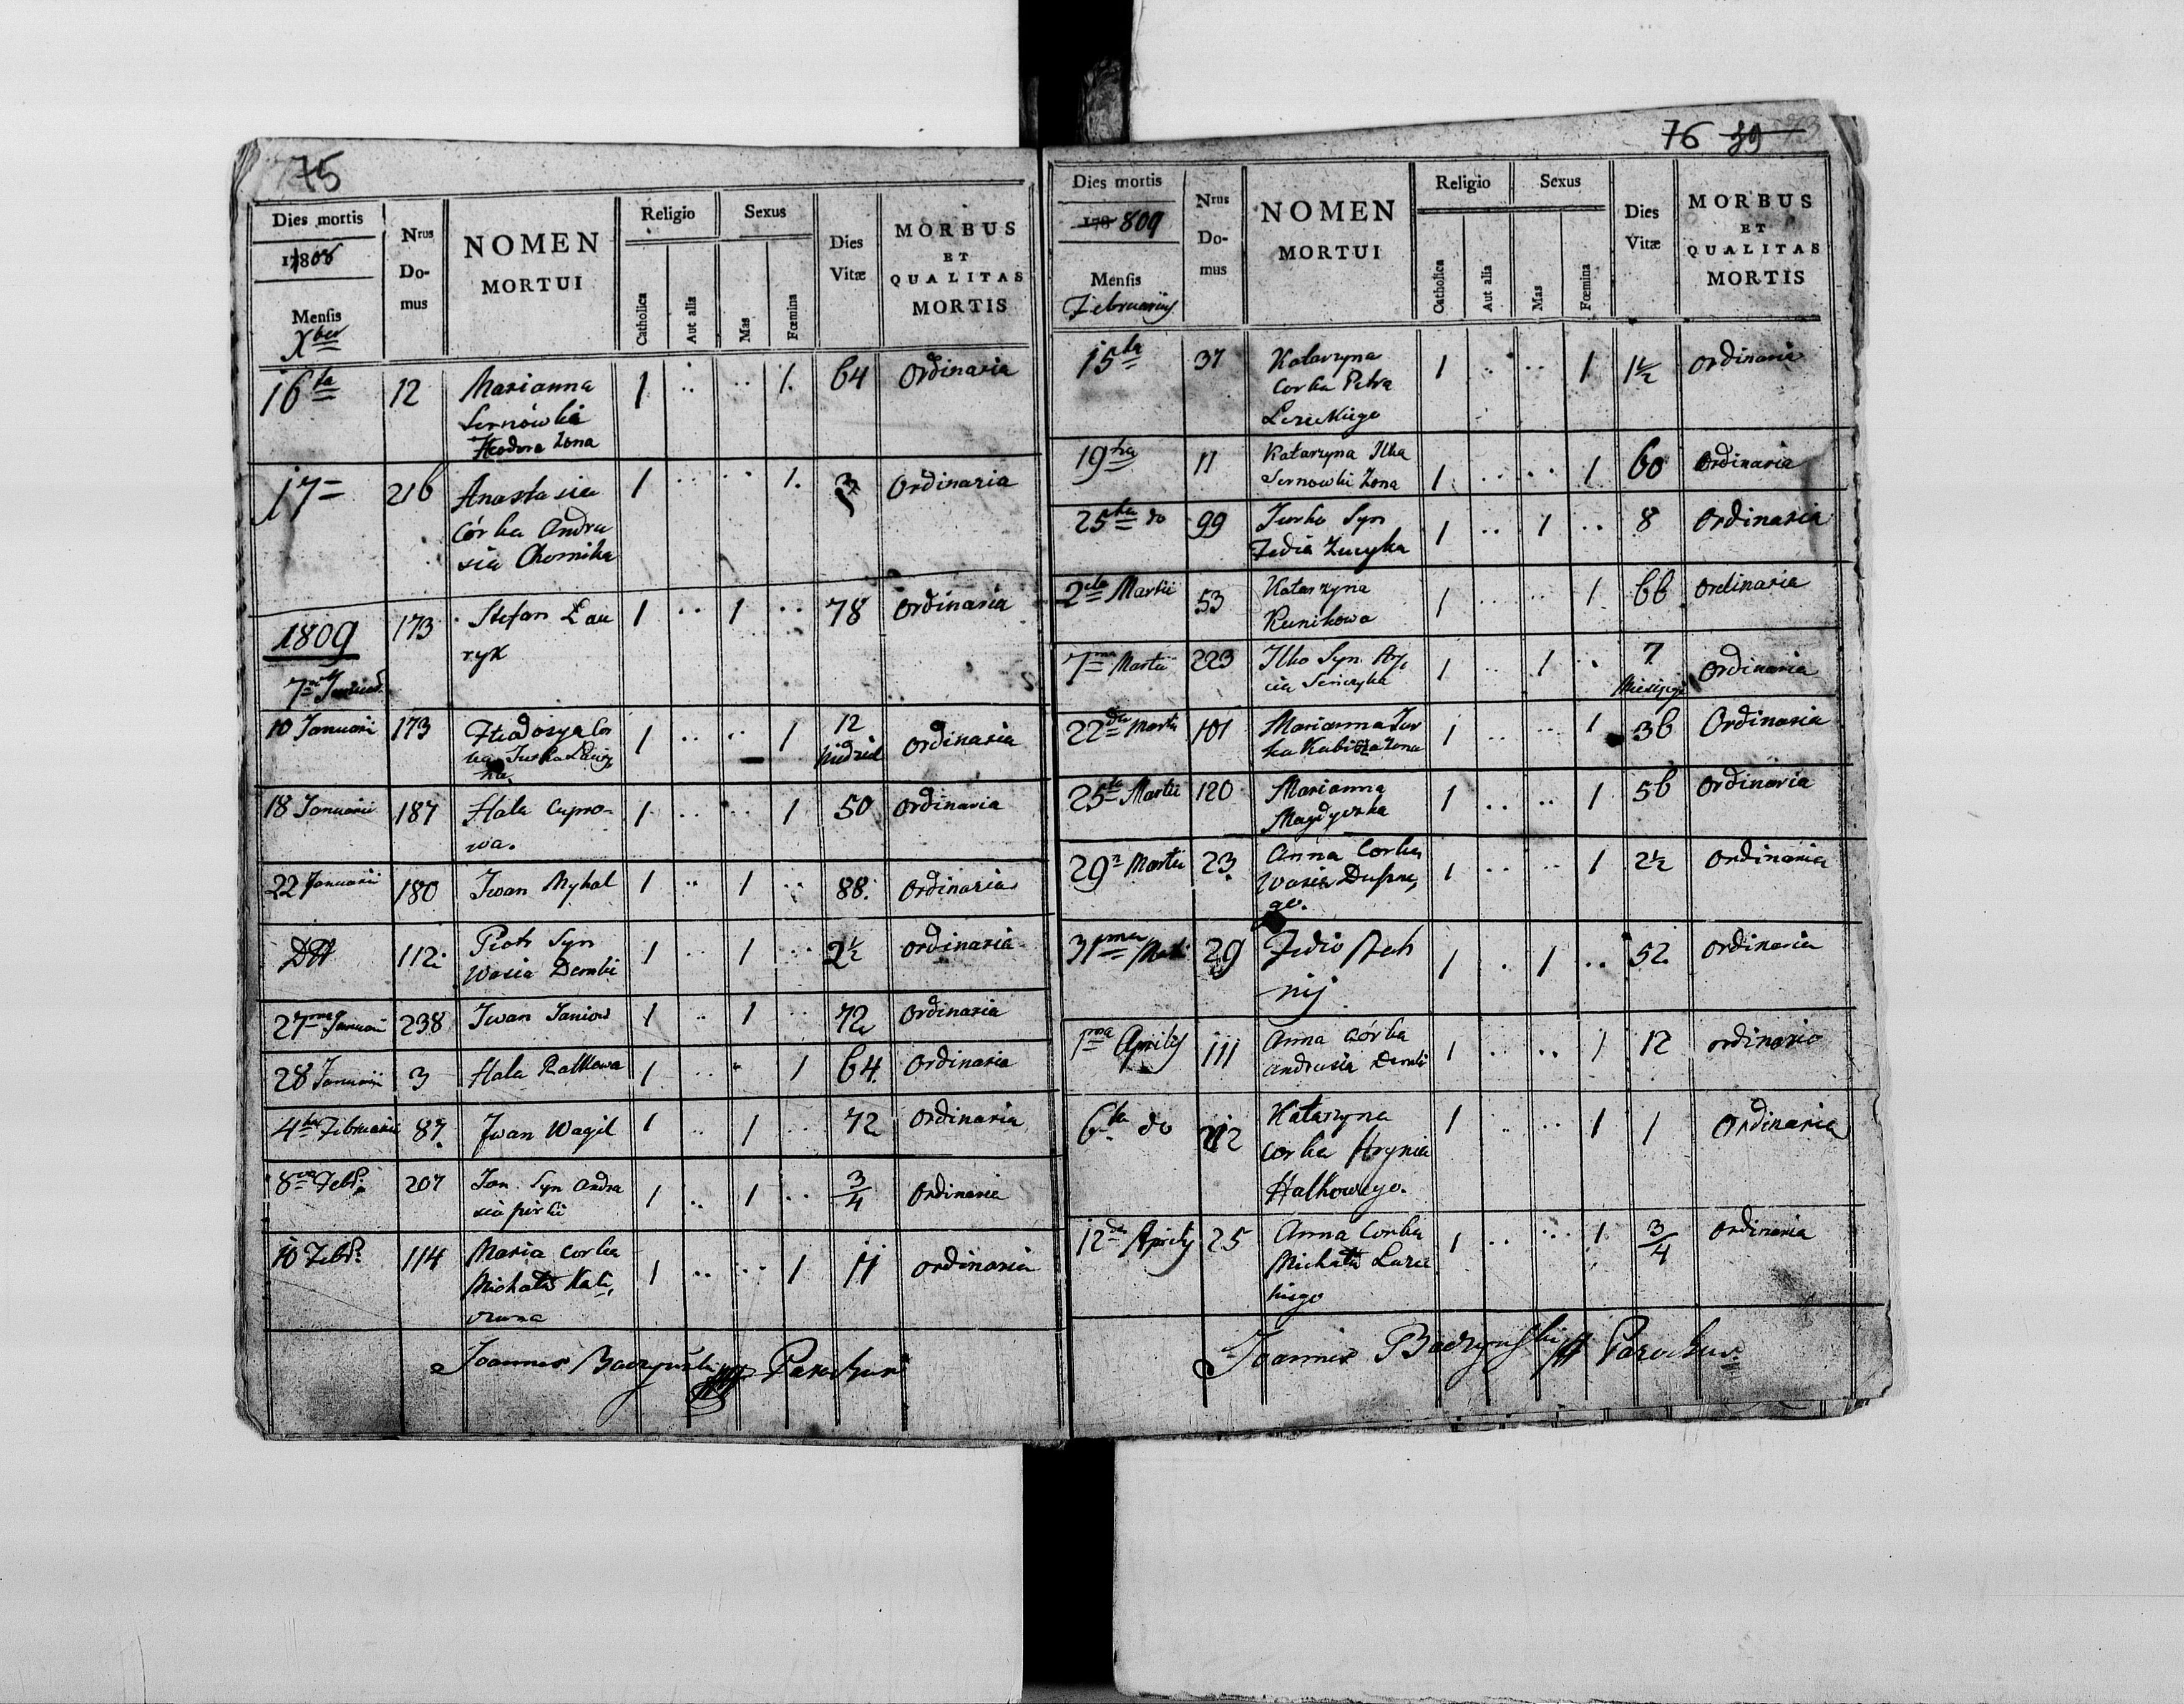 75
Dies mortis
1808
Mensis
Xber
Nrus
Do-
mus
NOMEN
MORTUI
Religio
Catholica
Aut alia
Sexus
Mas
Fœmina
Dies
Vitæ
MORBUS
ET
QUALITAS
MORTIS
16ta 12 Marianna 1 .. .. 1. 64 Ordinaria
Sernówka
Theodora żona
17 216 Anastasia 1 .. .. 1. 3 Ordinaria
córka Andru
sia
1809 173 Stefan Ław 1 .. 1 .. 78 Ordinaria
ryk
7ma Januarii
10 Januarii 173 Theodozya Cor 1 .. .. 1 12 Ordinaria
ka Jurka
Niedziel
18 Januarii 187 Hala Cupro- 1 .. .. 1 50 Ordinaria
wa.
22 Januarii 180 Iwan Myhal 1 .. 1 .. 88. Ordinaria
Dtt 112. Piotr Syn 1 .. 1 .. 2½ Ordinaria
Wasia Dembi
27ma Januarii 238 Iwan Janiow 1 .. 1 .. 72 Ordinaria
28 Januarii 3 Hala 1 .. .. 1 64. Ordinaria
4ta Februarii 87. Iwan Wagil 1 .. 1 .. 72 Ordinaria
8va Febr. 207 Jan Syn Andru 1 .. 1 .. 3/4 Ordinaria
sia
10 Febr. 114 Maria corka 1 .. .. 1 11 ordinaria
Michała
Joannes Baczyński Parochus
76 39
Dies mortis
178 809
Mensis
Februarius
Nrus
Do-
mus
NOMEN
MORTUI
Religio
Catholica
Aut alia
Sexus
Mas
Fœmina
Dies
Vitæ
MORBUS
ET
QUALITAS
MORTIS
15ta 37 Katarzyna 1 .. .. 1 1½ Ordinaria
Corka Petra
19na 11 Katarzyna Ilka 1 .. .. 1 60 Ordinaria
Sernowki żona
25ta do 99 Jurko Syn 1 .. 1 .. 8 Ordinaria
Fedia
2da Martii 53 Katarzyna 1 .. .. 1 66 Ordinaria
Kunikowa
7ma Martii 223 Ilko Syn 1 .. 1 .. 7 Ordinaria
Miesięcy
22da Martii 101 Marianna Jur 1 .. .. 1 36 Ordinaria
ka żona
25ta Martii 120 Marianna 1 .. .. 1 56 Ordinaria
29na Martii 23. Anna Corka 1 .. .. 1 2½ Ordinaria
Wasia
go.
31ma Martii 29 Fedio 1 . 1 .. 52. Ordinaria
1ma Aprilis 111 Anna córka 1 .. .. 1 12 ordinaria
Andrusia Dembi
6ta do 212 Katarzyna 1 .. .. 1 1 Ordinaria
corka Hrynia
Halkowego.
12da Aprilis 25 Anna Corka 1 .. .. 1. 3/4 Ordinaria
Michała Lazic
kiego
Joannes Baczyński Parochus.